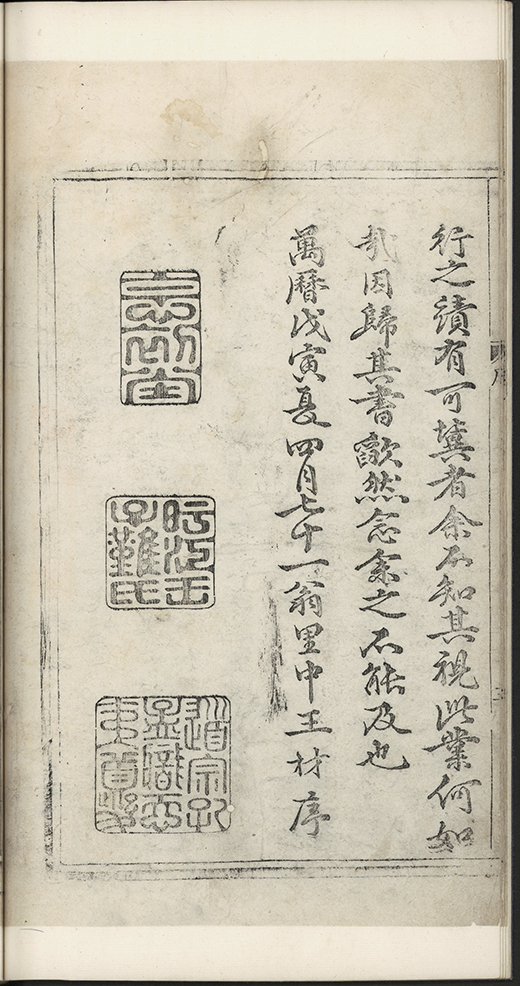 行之績有可冀者余不知其視此業何如
哉因歸其書歉然念余之不能及也
萬曆戊寅夏四月七十一翁里中王材序
旴江王
子難氏